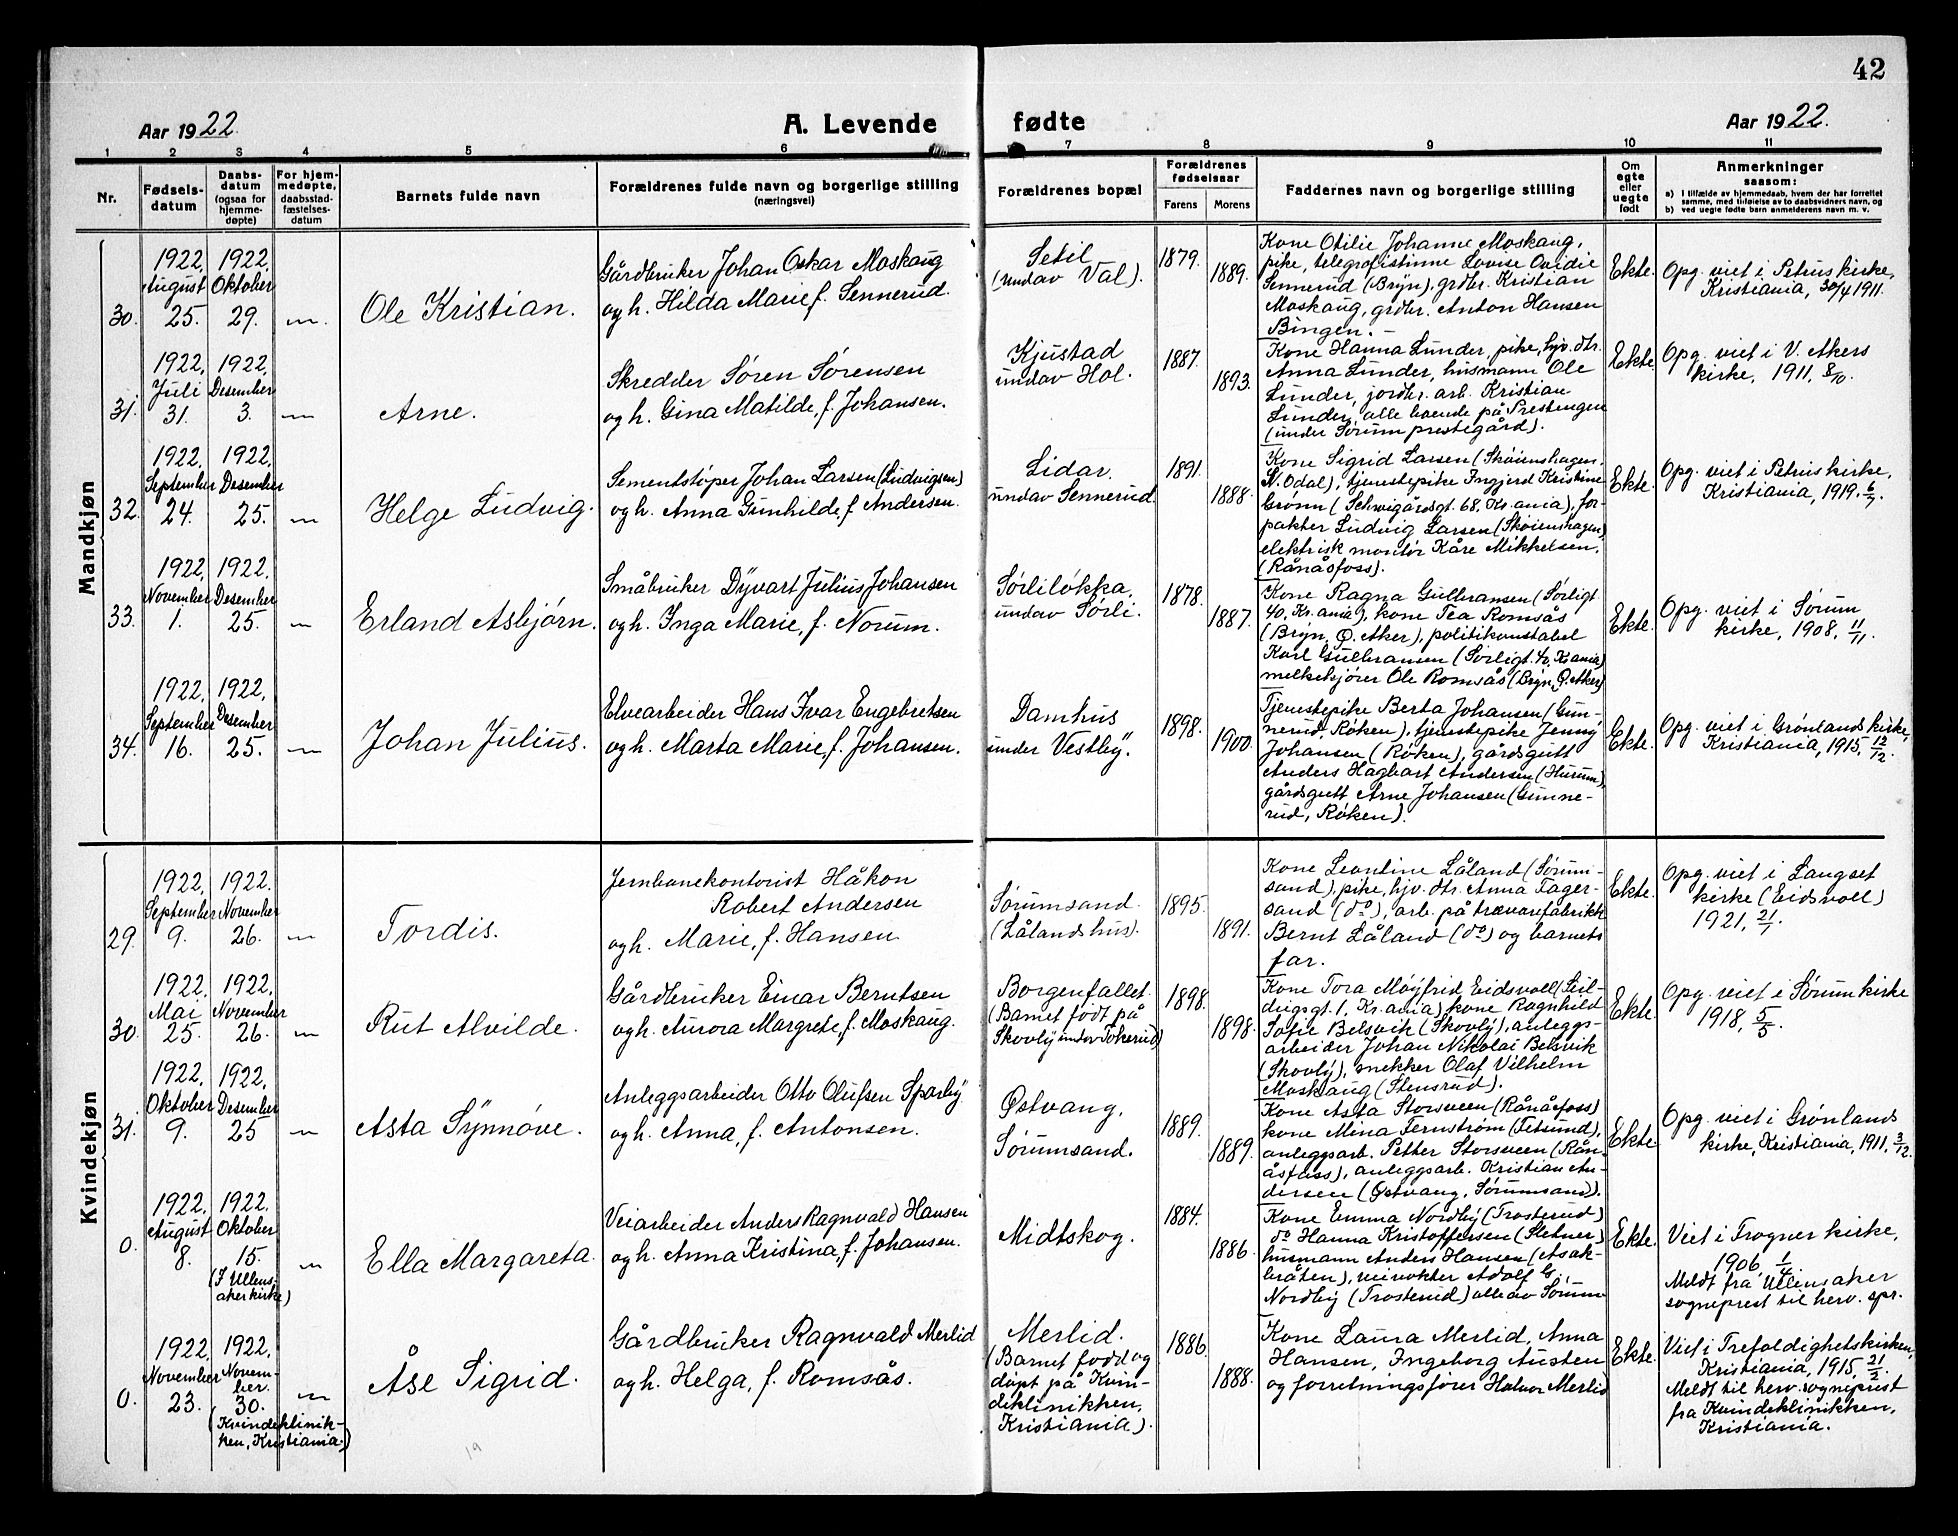 42
Aar 1922.
A. Levende fødte
Aar 1922.
1 2 3 4 5 6 7 8 9 10 11
Nr.
Fødsels-
datum
Daabs-
datum
(ogsaa for
hjemme-
døpte)
For hjem-
medøpte,
daabsstad-
fæstelses-
datum
Barnets fulde navn
Forældrenes fulde navn og borgerlige stilling
(næringsvei)
Forældrenes bopæl
Forældrenes
fødselsaar
Farens Morens
Faddernes navn og borgerlige stilling
Om
egte
eller
uegte
født
Anmerkninger
saasom:
a) I tilfælde av hjemmedaab, hvem der har forrettet
samme, med tilføielse av to daabsvidners navn, og
b) ved uegte fødte barn anmelderens navn m. v.
Mandkjøn
30.
1922,
August
25.
1922,
Oktober
29.
Ole Kristian.
Gårdbruker Johan Oskar Moskaug
og h. Hilda Marie, f. Sennerud.
Setil
(undav Val).
1879.
1889.
Kone Otilie Johanne Moskaug,
pike, telegrafistinne Lovise Ovidie
Sennerud (Bryn), grdbr. Kristian
Moskaug, grdbr. Anton Hansen
Bingen.
Ekte.
Opg. viet i Petrus kirke,
Kristiania, 30/4 1911.
31.
1922,
Juli
31.
1922,
Desember
3.
Arne.
Skredder Søren Sørensen
og h. Gina Matilde, f. Johansen.
Kjustad
undav Hol.
1887.
1893.
Kone Hanna Lunder, pike, hjv. dtr.
Anna Lunder, husmann Ole
Lunder, jordbr. arb. Kristian
Lunder, alle boende på Prestengen
(under Sørum prestegård).
Ekte.
Opg. viet i V. Akers
kirke, 1911, 8/10.
32.
1922,
September
24.
1922,
Desember
25.
Helge Ludvig.
Sementstøper Johan Larsen (Ludvigsen)
og h. Anna Gunhilde, f. Andersen.
Lidar.
undav Sennerud.
1891.
1888.
Kone Sigrid Larsen (Skøienshagen,
N. Odal), tjenestepike Ingjerd Kristine
Grønn (Schweigårdsgt. 68, Kr.ania), for-
pakter Ludvig Larsen (Skøienshagen),
elektrisk montør Kåre Mikkelsen,
(Rånåsfoss).
Ekte.
Opg. viet i Petrus kirke,
Kristiania, 1919. 6/7.
33.
1922,
November
1.
1922,
Desember
25.
Erland Asbjørn.
Småbruker Dyvart Julius Johansen
og h. Inga Marie, f. Norum.
Sørliløkka,
undav Sørli.
1878.
1887.
Kone Ragna Gulbransen (Sørligt.
40, Kr.ania), kone Tea Romsås
(Bryn, Ø. Aker), politikonstabel
Karl Gulbransen (Sørligt. 40, Kr.ania)
melkekjører Ole Romsås (Bryn, Ø. Aker)
Ekte.
Opg. viet i Sørum
kirke, 1908, 11/11.
34.
1922,
September
16.
1922,
Desember
25.
Johan Julius.
Elvearbeider Hans Ivar Engebretsen
og h. Marta Marie, f. Johansen.
Damhus
under Vestby.
1898.
1900.
Tjenestepike Berta Johansen (Gun-
nerud, Røken), tjenestepike Jenny
Johansen (Røken), gårdsgutt
Anders Hagbart Andersen (Hurum),
gårdsgutt Arne Johansen (Gunne-
rud, Røken).
Ekte.
Opg. viet i Grønlands kirke,
Kristiania, 1915, 12/12.
Kvindekjøn
29.
1922,
September
9.
1922.
November
26.
Tordis.
Jernbanekontorist Håkon
Robert Andersen
og h. Marie, f. Hansen
Sørumsand.
(Lålandshus).
1895.
1891.
Kone Leontine Låland (Sørum-
sand), pike, hjv. dtr. Anna Fager-
sand (do), arb. på trævarefabrikk
Bernt Låland (do) og barnets
far.
Ekte.
Opg. viet i Langset
kirke (Eidsvoll)
1921, 21/1.
30.
1922,
Mai
25.
1922,
November
26.
Rut Alvilde.
Gårdbruker Einar Berntsen
og h. Aurora Margrete, f. Moskaug.
Borgenfallet.
(Barnet født på
Skovly undav Tokerud)
1898.
1898.
Kone Tora Møyfrid Eidsvoll
1, Kr.ania) kone Ragnhild
Sofie Belsvik (Skovly), anleggs-
arbeider Johan Nikolai Belsvik
(Skovly), mekker Olaf Vilhelm
Moskaug (Stensrud).
Ekte.
Opg. viet i Sørum kirke
1918, 5/5.
31.
1922,
Oktober
9.
1922,
Desember
25
Asta Synnøve.
Anleggsarbeider Otto Olufsen Sparby
og h. Anna, f. Antonsen.
Østvang,
Sørumsand.
1889.
1889.
Kone Asta Storsveen (Rånåsfoss)
kone Mina Fernstrøm (Fetsund),
anleggsarb. Petter Storsveen (Rån-
åsfoss), anleggsarb. Kristian An-
dersen (Østvang, Sørumsand).
Ekte.
Opg. viet i Grønlands
kirke, Kristiania, 1911, 3/12.
0.
1922.
August
8.
1922.
Oktober
15.
(I Ullens-
aker kirke)
Ella Margareta.
Veiarbeider Anders Ragnvald Hansen
og h. Anna Kristina, f. Johansen.
Midtskog.
1884.
1886.
Kone Emma Nordby (Trosterud)
do Hanna Kristoffersen (Sletner)
husmann Anders Hansen (Asak-
bråten), veivokter Adolf G.
Nordby (Trosterud) alle av Sørum
Ekte.
Viet i Frogner kirke,
1906, 1/4.
Meldt fra Ullensaker
sogneprest til herv. spr.
0.
1922.
November
23.
1922.
Novem-
ber.
30.
(Kvindeklinik-
ken, Kristiania.)
Åse Sigrid.
Gårdbruker Ragnvald Merlid
og h. Helga, f. Romsås.
Merlid.
(Barnet født og
døpt på Kvin-
deklinikken,
Kristiania).
1886.
1888.
Kone Laura Merlid, Anna
Hansen, Ingeborg Austen
og forretningsfører Halvor Merlid
Ekte.
Viet i Trefoldighetskirken,
Kristiania, 1915, 21/2.
Meldt til herv. sogneprest
fra Kvindeklinikken,
Kristiania.
19